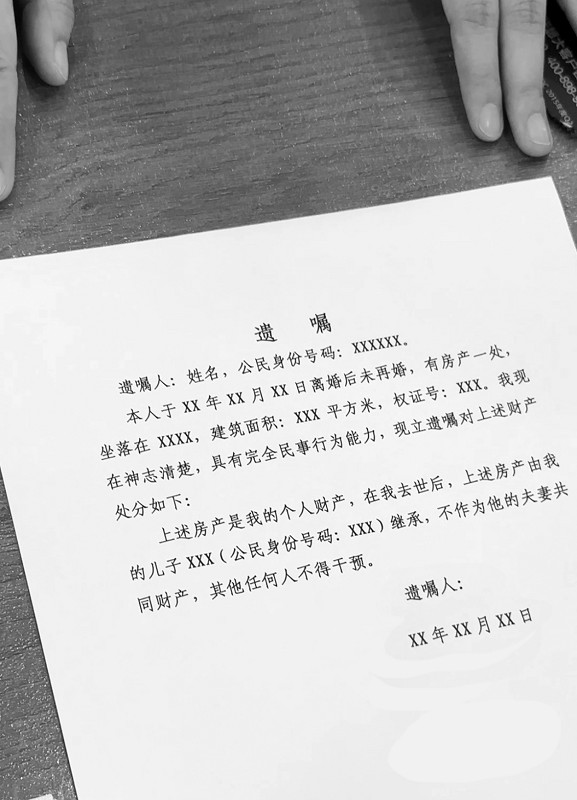 400-898-
遗 嘱
遗嘱人：姓名，公民身份号码：XXXXXX。
本人于 XX 年 XX 月 XX 日离婚后未再婚，有房产一处，
坐落在 XXXX，建筑面积：XXX 平方米，权证号：XXX。我现
在神志清楚，具有完全民事行为能力，现立遗嘱对上述财产
处分如下：
上述房产是我的个人财产，在我去世后，上述房产由我
的儿子 XXX（公民身份号码：XXX）继承，不作为他的夫妻共
同财产，其他任何人不得干预。
遗嘱人：
XX 年 XX 月 XX 日